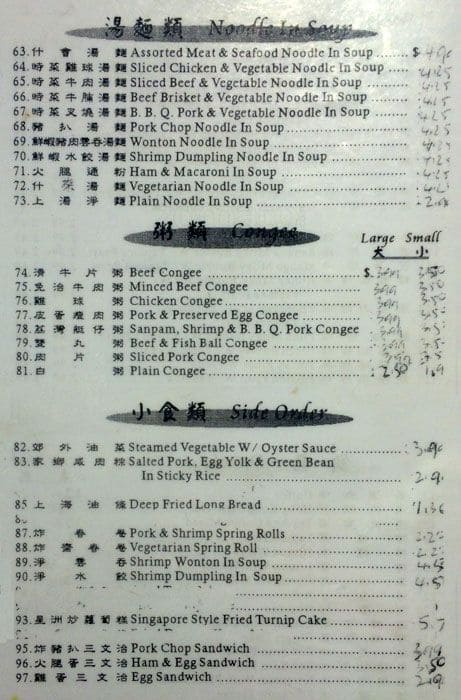 湯麵類 Noodle In Soup
63. 什會湯麵 Assorted Meat & Seafood Noodle In Soup
64. 時菜雞球湯麵 Sliced Chicken & Vegetable Noodle In Soup 4.25
65. 時菜牛肉湯麵 Sliced Beef & Vegetable Noodle In Soup 4.25
66. 時菜牛腩湯麵 Beef Brisket & Vegetable Noodle In Soup 4.25
67. 時菜叉燒湯麵 B. B. Q. Pork & Vegetable Noodle In Soup 4.25
68. 豬扒湯麵 Pork Chop Noodle In Soup 4.25
69. 鮮蝦豬肉雲吞湯麵 Wonton Noodle In Soup 4.25
70. 鮮蝦水餃湯麵 Shrimp Dumpling Noodle In Soup 4.25
71. 火腿通粉 Ham & Macaroni In Soup 4.25
72. 什菜湯麵 Vegetarian Noodle In Soup 4.25
73. 上湯淨麵 Plain Noodle In Soup
粥類 Congee
Large Small
大 小
74. 滑牛片粥 Beef Congee $ 3.99 3.50
75. 免治牛肉粥 Minced Beef Congee 3.99 3.50
76. 雞球粥 Chicken Congee 3.99 3.50
77. 皮蛋瘦肉粥 Pork & Preserved Egg Congee 3.99 3.5
78. 荔灣艇仔粥 Sanpam, Shrimp & B. B. Q. Pork Congee 3.99 3.5
79. 雙丸粥 Beef & Fish Ball Congee 3.99 3.5
80. 肉片粥 Sliced Pork Congee 3.99 3.5
81. 白粥 Plain Congee 2.50 1.9
小食類 Side Order
82. 郊外油菜 Steamed Vegetable W/ Oyster Sauce
83. 家鄉咸肉粽 Salted Pork, Egg Yolk & Green Bean
In Sticky Rice
85 上海油條 Deep Fried Long Bread
87. 炸春卷 Pork & Shrimp Spring Rolls 2.25
88. 炸齋春卷 Vegetarian Spring Roll 2.25
89. 淨雲吞 Shrimp Wonton In Soup 4.5
90. 淨水餃 Shrimp Dumpling In Soup 4.5
93. 星洲炒蘿蔔糕 Singapore Style Fried Turnip Cake 5.7
95. 炸豬扒三文治 Pork Chop Sandwich 3.99
96. 火腿蛋三文治 Ham & Egg Sandwich 3.50
97. 雞蛋三文治 Egg Sandwich